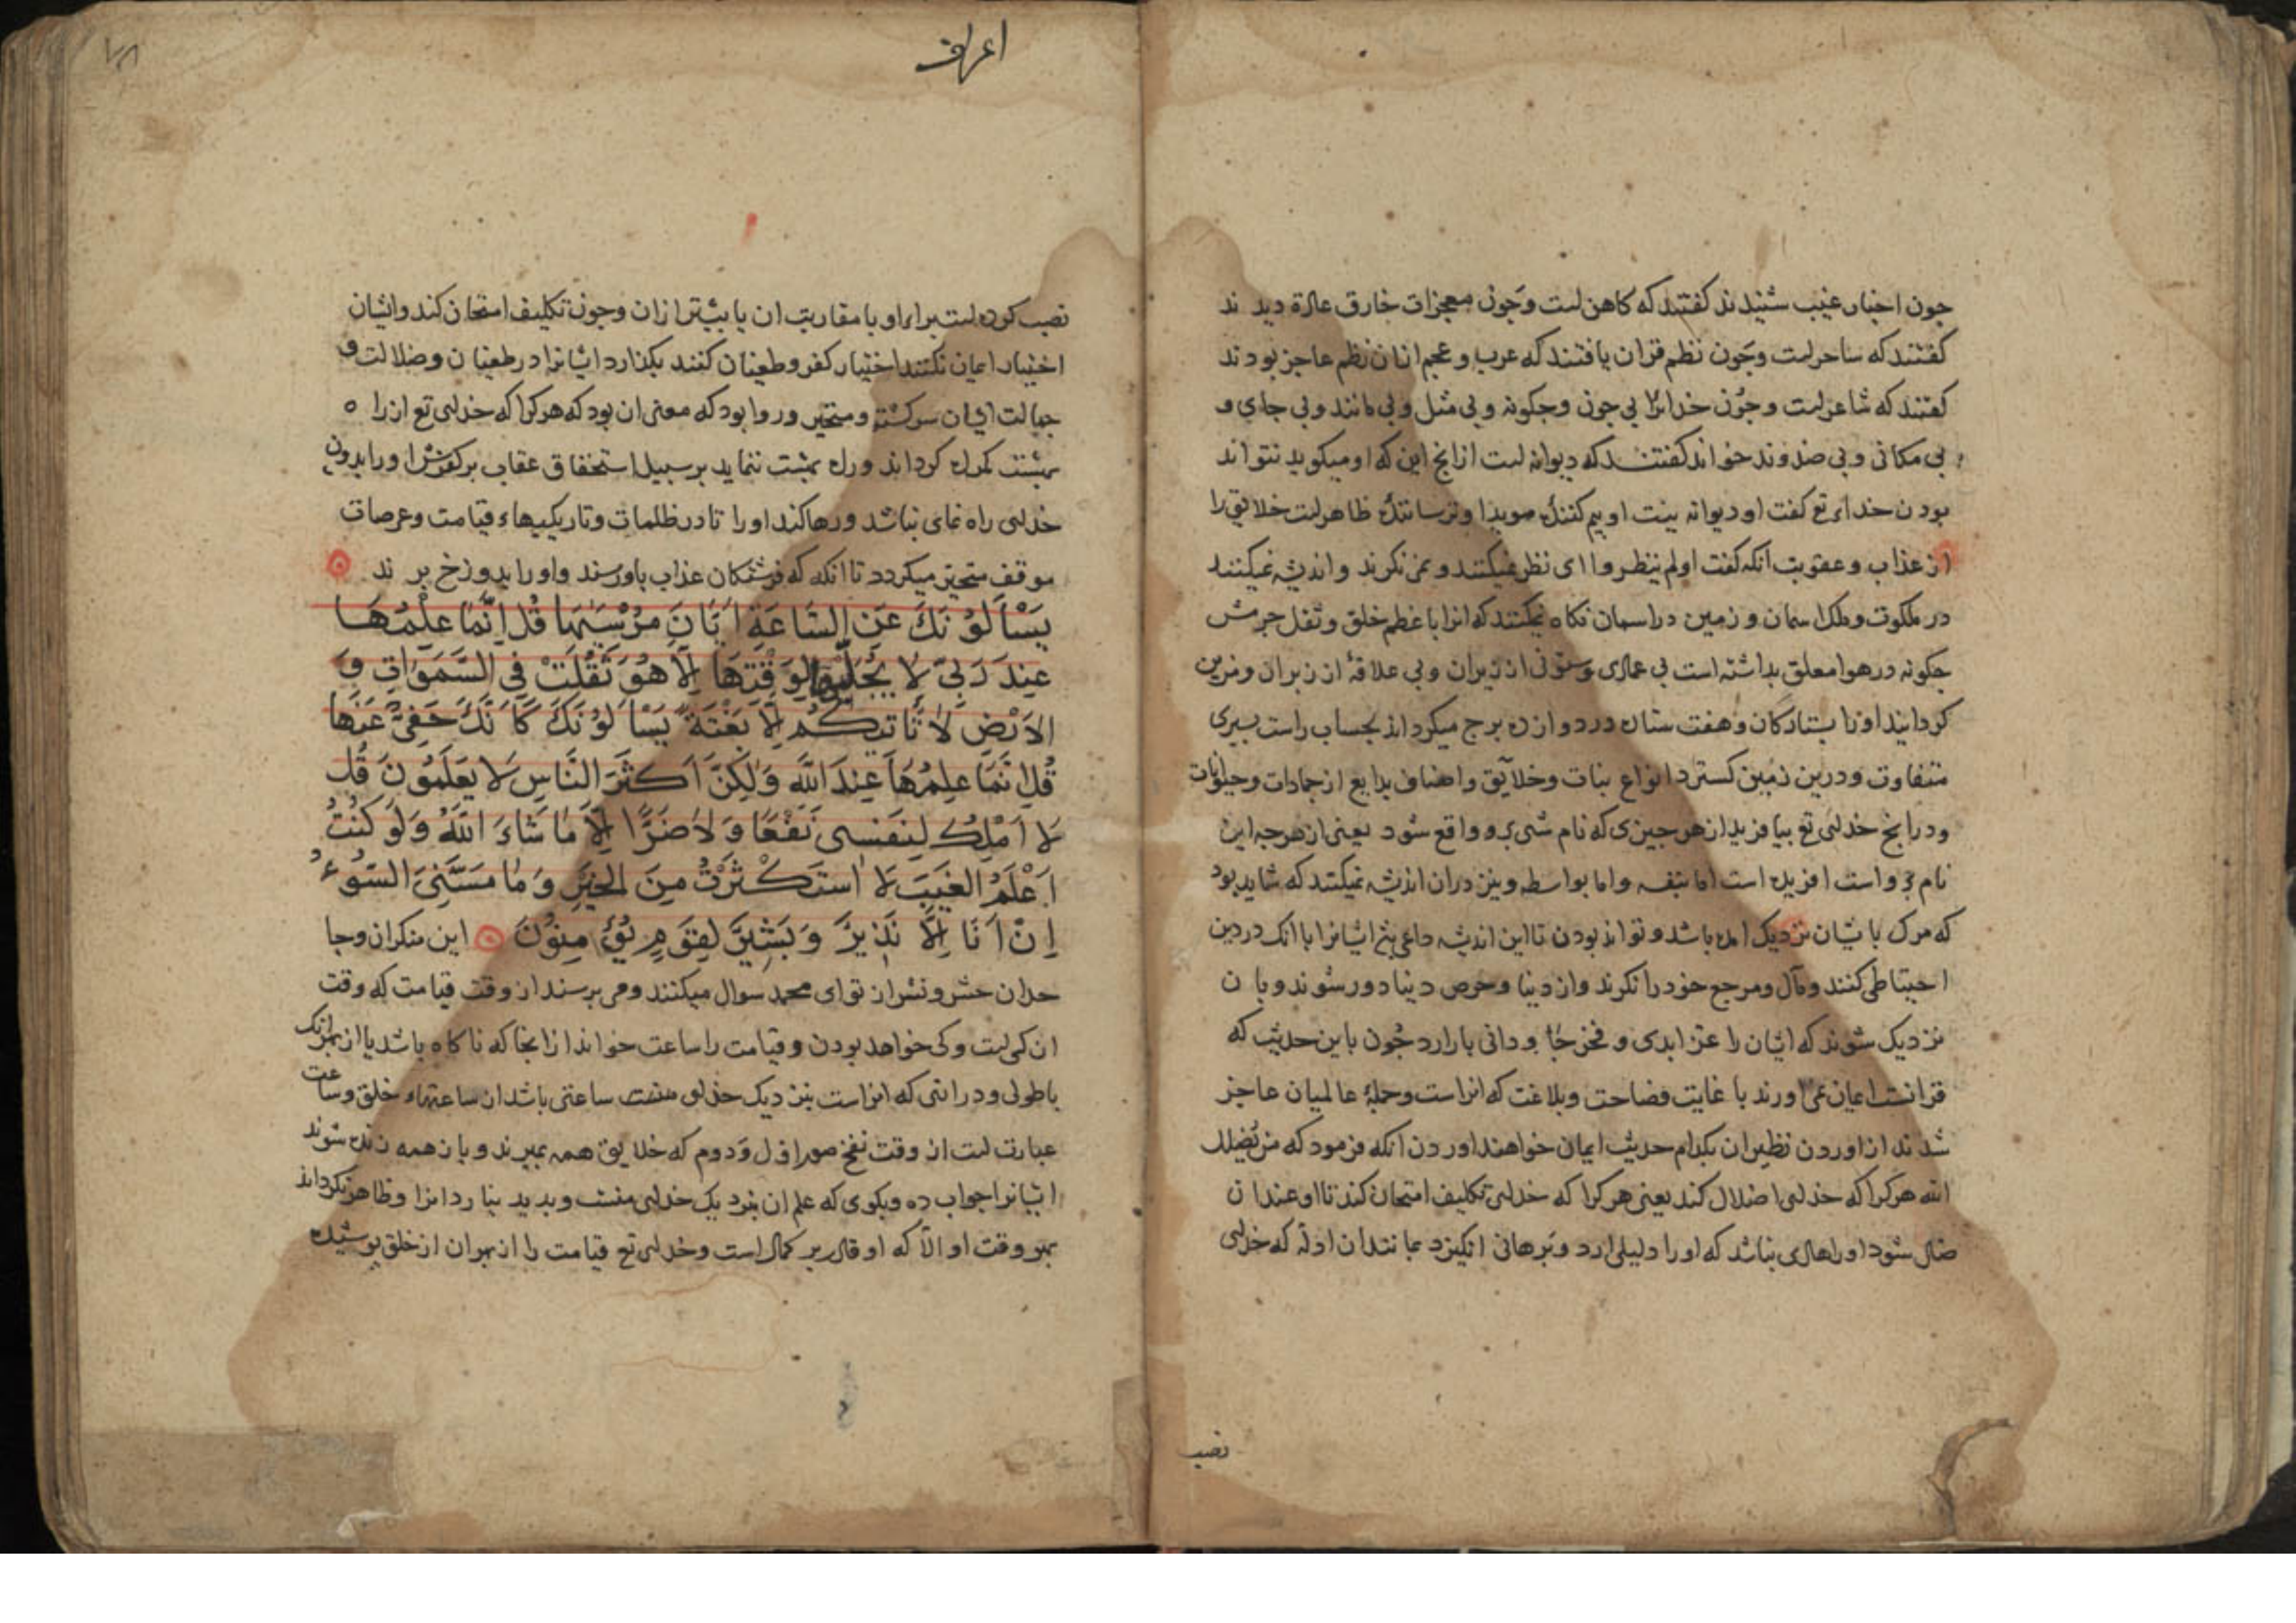 جون اخبار غیب شنیدند کفتند که کاهن است وجون معجزات خارق عادة دیدند
کفتند که ساحر است وجون نظم قران یافتند که عرب و عجم از ان نظم عاجز بودند
کفتند که شاعر است وجون خدایرا بی جون وجکونه و بی مثل و بی مانند و بی جای و
بی مکانی و بی ضد وند خواند کفتند که دیوانه است ازانج این که او میکوید نتواند
بودن خدای تع کفت او دیوانه نیست او بیم کننده هویدا وترسانندهٔ ظاهر است خلایق را
از عذاب و عقوبت انکه کفت اولم ینظروا ای نظر نمیکنند و نمی نکرند و اندیشه نمیکنند
در ملکوت وملک اسمان و زمین در اسمان نکاه نمیکنند که انرا با عظم خلق وثقل جرمش
جکونه در هوا معلق بداشته است بی عمادی وستونی از زیران و بی علاقهٔ از زبران ومزین
کردانید اورا بستارکان و هفت ستاره در دوازده برج میکرداند بحساب راست بسیری
متفاوت ودرین زمین کسترد انواع نبات وخلایق واصناف بدایع از جمادات وحیوانات
ودرانج خدای تع بیافرید از هر جیزی که نام شی برو واقع شود یعنی از هرجه این
نام برو است افریده است اما بنفسه واما بواسطه ونیز دران اندیشه نمیکنند که شاید بود
که مرک با یشان نزدیک امده باشد وتواند بودن تا این اندیشه داعی شد ایشانرا باانک در دین
احتیاطی کنند ومآل ومرجع خود را نکرند واز دنیا وحرص دنیا دور شوند وبان
نزدیک شوند که ایشان را عز ابدی و فخر جاودانی بار ارد جون باین حدیث که
قرانست ایمان نمی اورند با غایت فصاحت وبلاغت که انراست وجملهٔ عالمیان عاجز
شدند از اوردن نظیر ان بکدام حدیث ایمان خواهند اوردن انکه فرمود که من یضلل
الله هرکرا که خدای اضلال کند یعنی هرکرا که خدای تکلیف امتحان کند تا او عندان
ضال شود اورا هادی نباشد که اورا دلیلی ارد وبرهانی انکیزد مانند ان ادله که خدای
نصب
اعراف
نصب کرده است برای او یا مقارب ان یا بیشتر ازان وجون تکلیف امتحان کند وایشان
اختیار ایمان نکنند اختیار کفر وطغیان کنند بکذارد ایشانرا در طغیان وضلالت و
جهالت ایشان سرکشته ومتحیر وروا بود که معنی ان بود که هرکرا که خدای تع ازراه
بهشت کمراه کرداند وراه بهشت ننماید بر سبیل استحقاق عقاب بر کفرش اورا بدون
خدای راه نمای نباشد ورها کند اورا تا در ظلمات وتاریکیهاء قیامت وعرصات
موقف متحیر میکردد تا انکه که فرشتکان عذاب باو رسند واورا بدوزخ برند
يَسْأَلُونَكَ عَنِ السَّاعَةِ اَيَّانَ مُرْسٰيهَا قُلْ اِنَّمَا عِلْمُهَا
عِنْدَ رَبِّي لَا يُجَلِّيهَا لِوَقْتِهَا اِلَّا هُوَ ثَقُلَتْ فِي السَّمَوَاتِ وَ
الاَرْضِ لَا تَاتِيكُمْ اِلَّا بَغْتَةً يَسْأَلُونَكَ كَاَنَّكَ حَفِيٌّ عَنْهَا
قُلْ اِنَّمَا عِلْمُهَا عِنْدَ اللّٰهِ وَلٰكِنَّ اَكْثَرَ النَّاسِ لَا يَعْلَمُونَ قُلْ
لَا اَمْلِكُ لِنَفْسِى نَفْعًا وَلَا ضَرًّا اِلَّا مَا شَاءَ اللّٰهُ وَلَوْ كُنْتُ
اَعْلَمُ الْغَيْبَ لَا اسْتَكْثَرْتُ مِنَ الْخَيْرِ وَمَا مَسَّنِيَ السُّوءُ
اِنْ اَنَا اِلَّا نَذِيرٌ وَبَشِيرٌ لِقَوْمٍ يُؤْمِنُونَ این منکران وجا
حدان حشر ونشر از تو ای محمد سوال میکنند ومی برسند از وقت قیامت که وقت
ان کی است وکی خواهد بودن وقیامت را ساعت خواند ازانجا که ناکاه باشد یا از بهر انک
باطولی ودرازنی که انراست بنزدیک خدای ساعتی باشد از ساعتهاء خلق وساعت
عبارت است از وقت نفخ صور اول ودوم که خلایق همه بمیرند وباز همه زنده شوند
ایشانرا جواب ده وبکوی که علم ان بنزدیک خدای منست وبدید نیارد انرا وظاهر نکرداند
بهر وقت او الا که او قادر بر کمال است وخدای تع قیامت را از بهر ان از خلق بوشیده